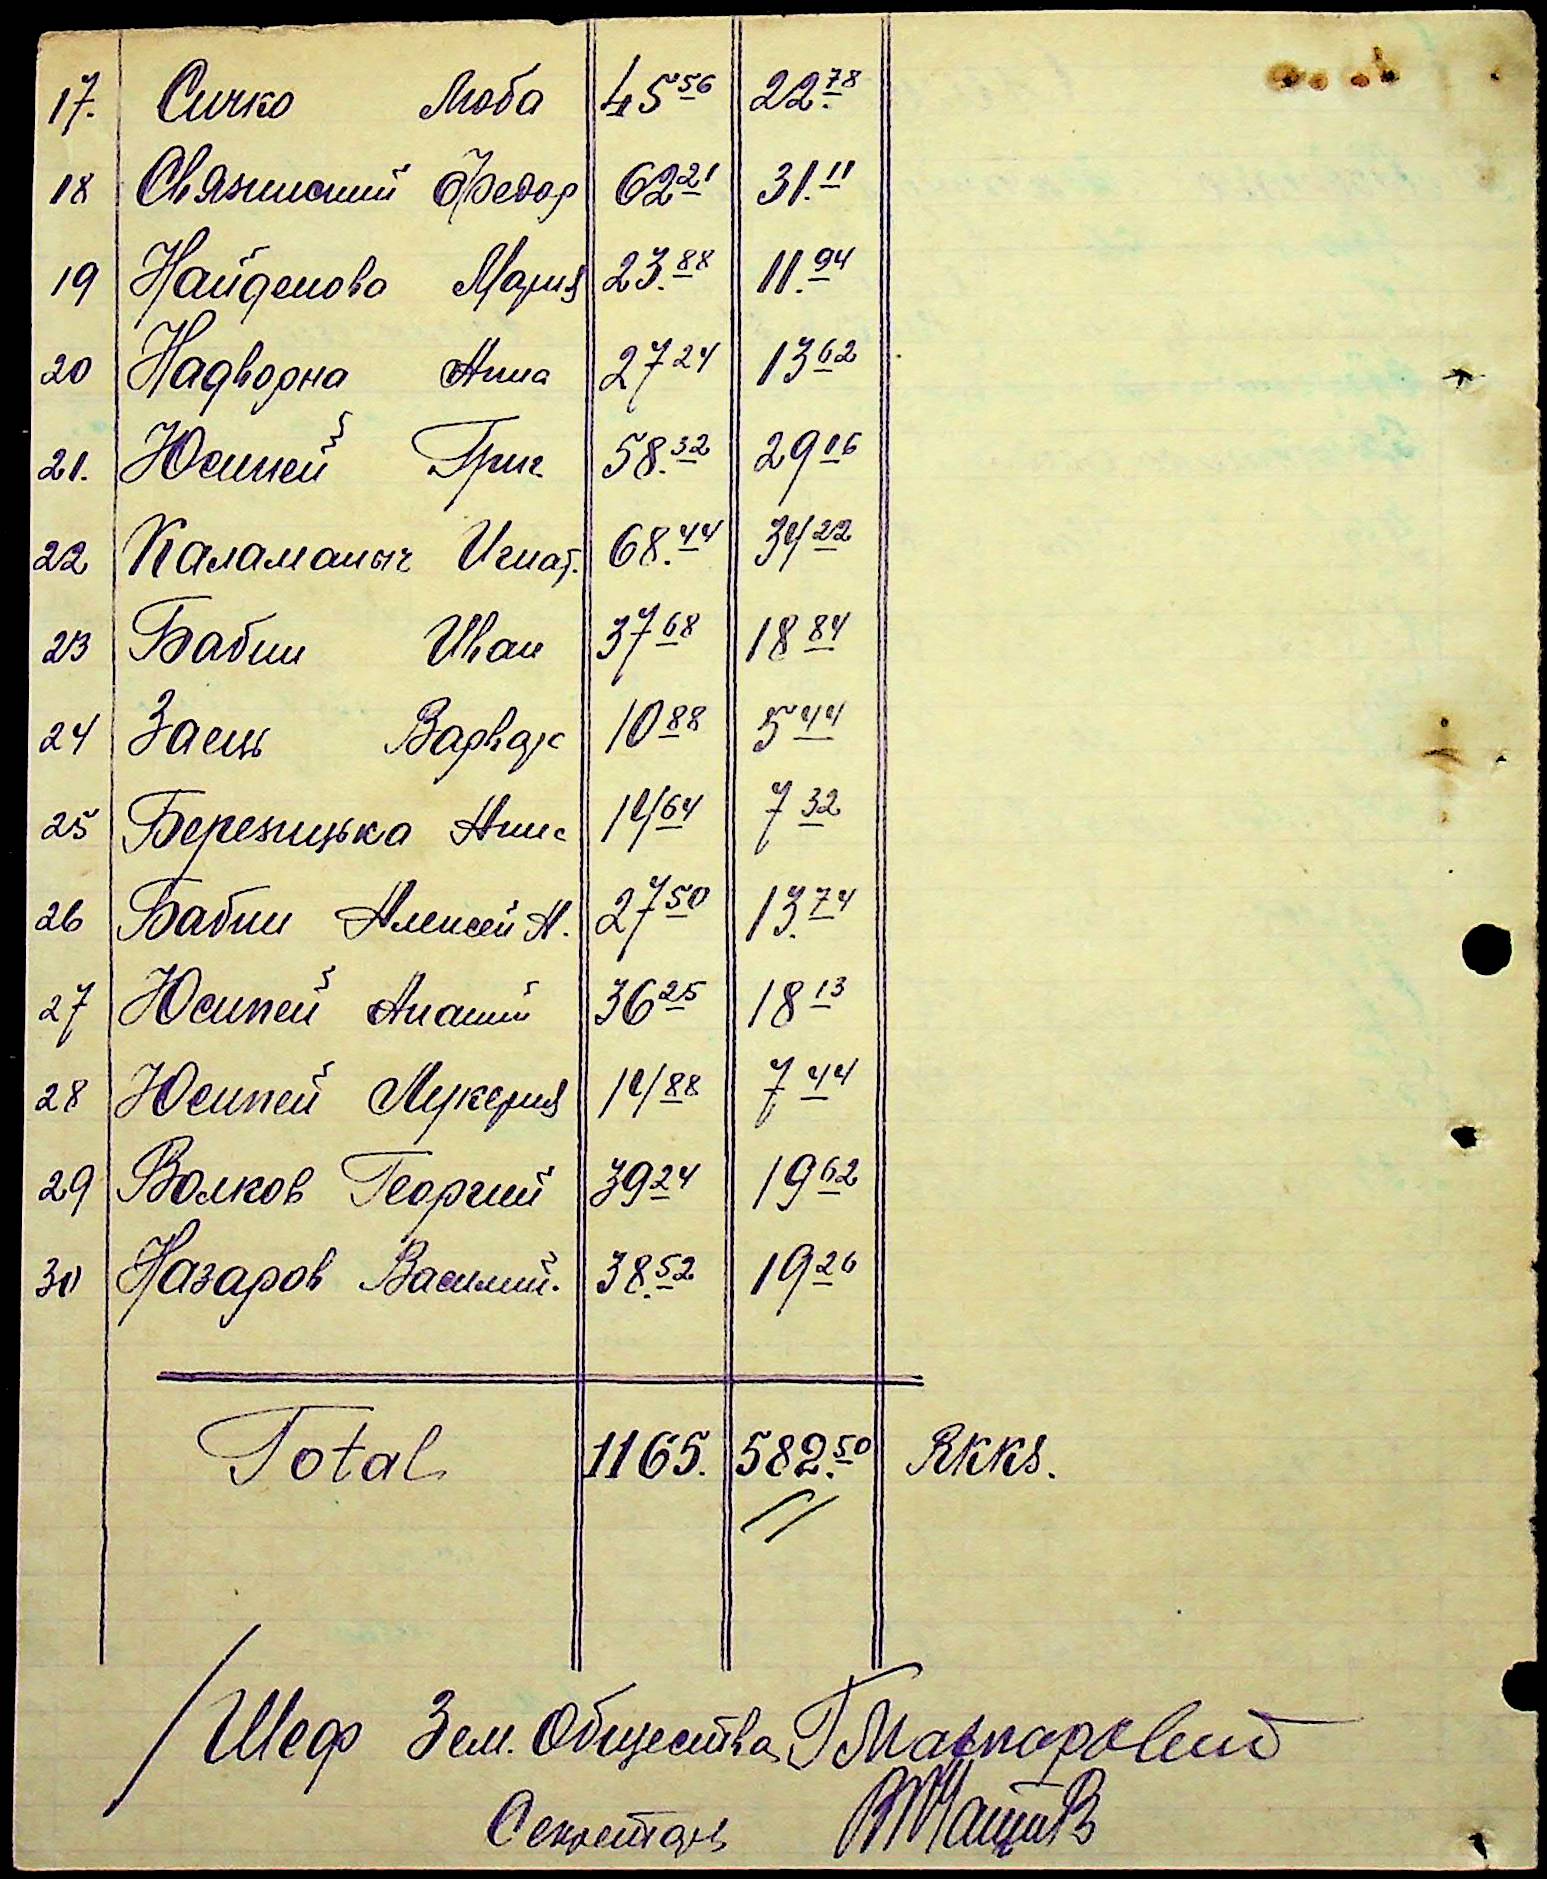 17. Сичко Люба 45 56 22.78
18 Свяжинский Федор 62 21 31.11
19 Найденова Мария 23.88 11.94
20 Надворна Анна 27 24 13 62
21. Юсипей Григ 58.32 29 16
22 Каламаныч Игнат. 68.44 34 22
23 Бабии Иван 37 68 18 84
24 Заець Варвар 10 88 5 44
25 Березицька Анна 14 64 7 32
26 Бабии Алексей А. 27 50 13.74
27 Юсипей Ананий 36 25 18 13
28 Юсипей Лукерия 14 88 7 44
29 Волков Георгий 39 24 19 62
30 Назаров Василий. 38.52 19 26
Total 1165. 582.50 RKKS.
Шеф Зем. Общества
Секретарь